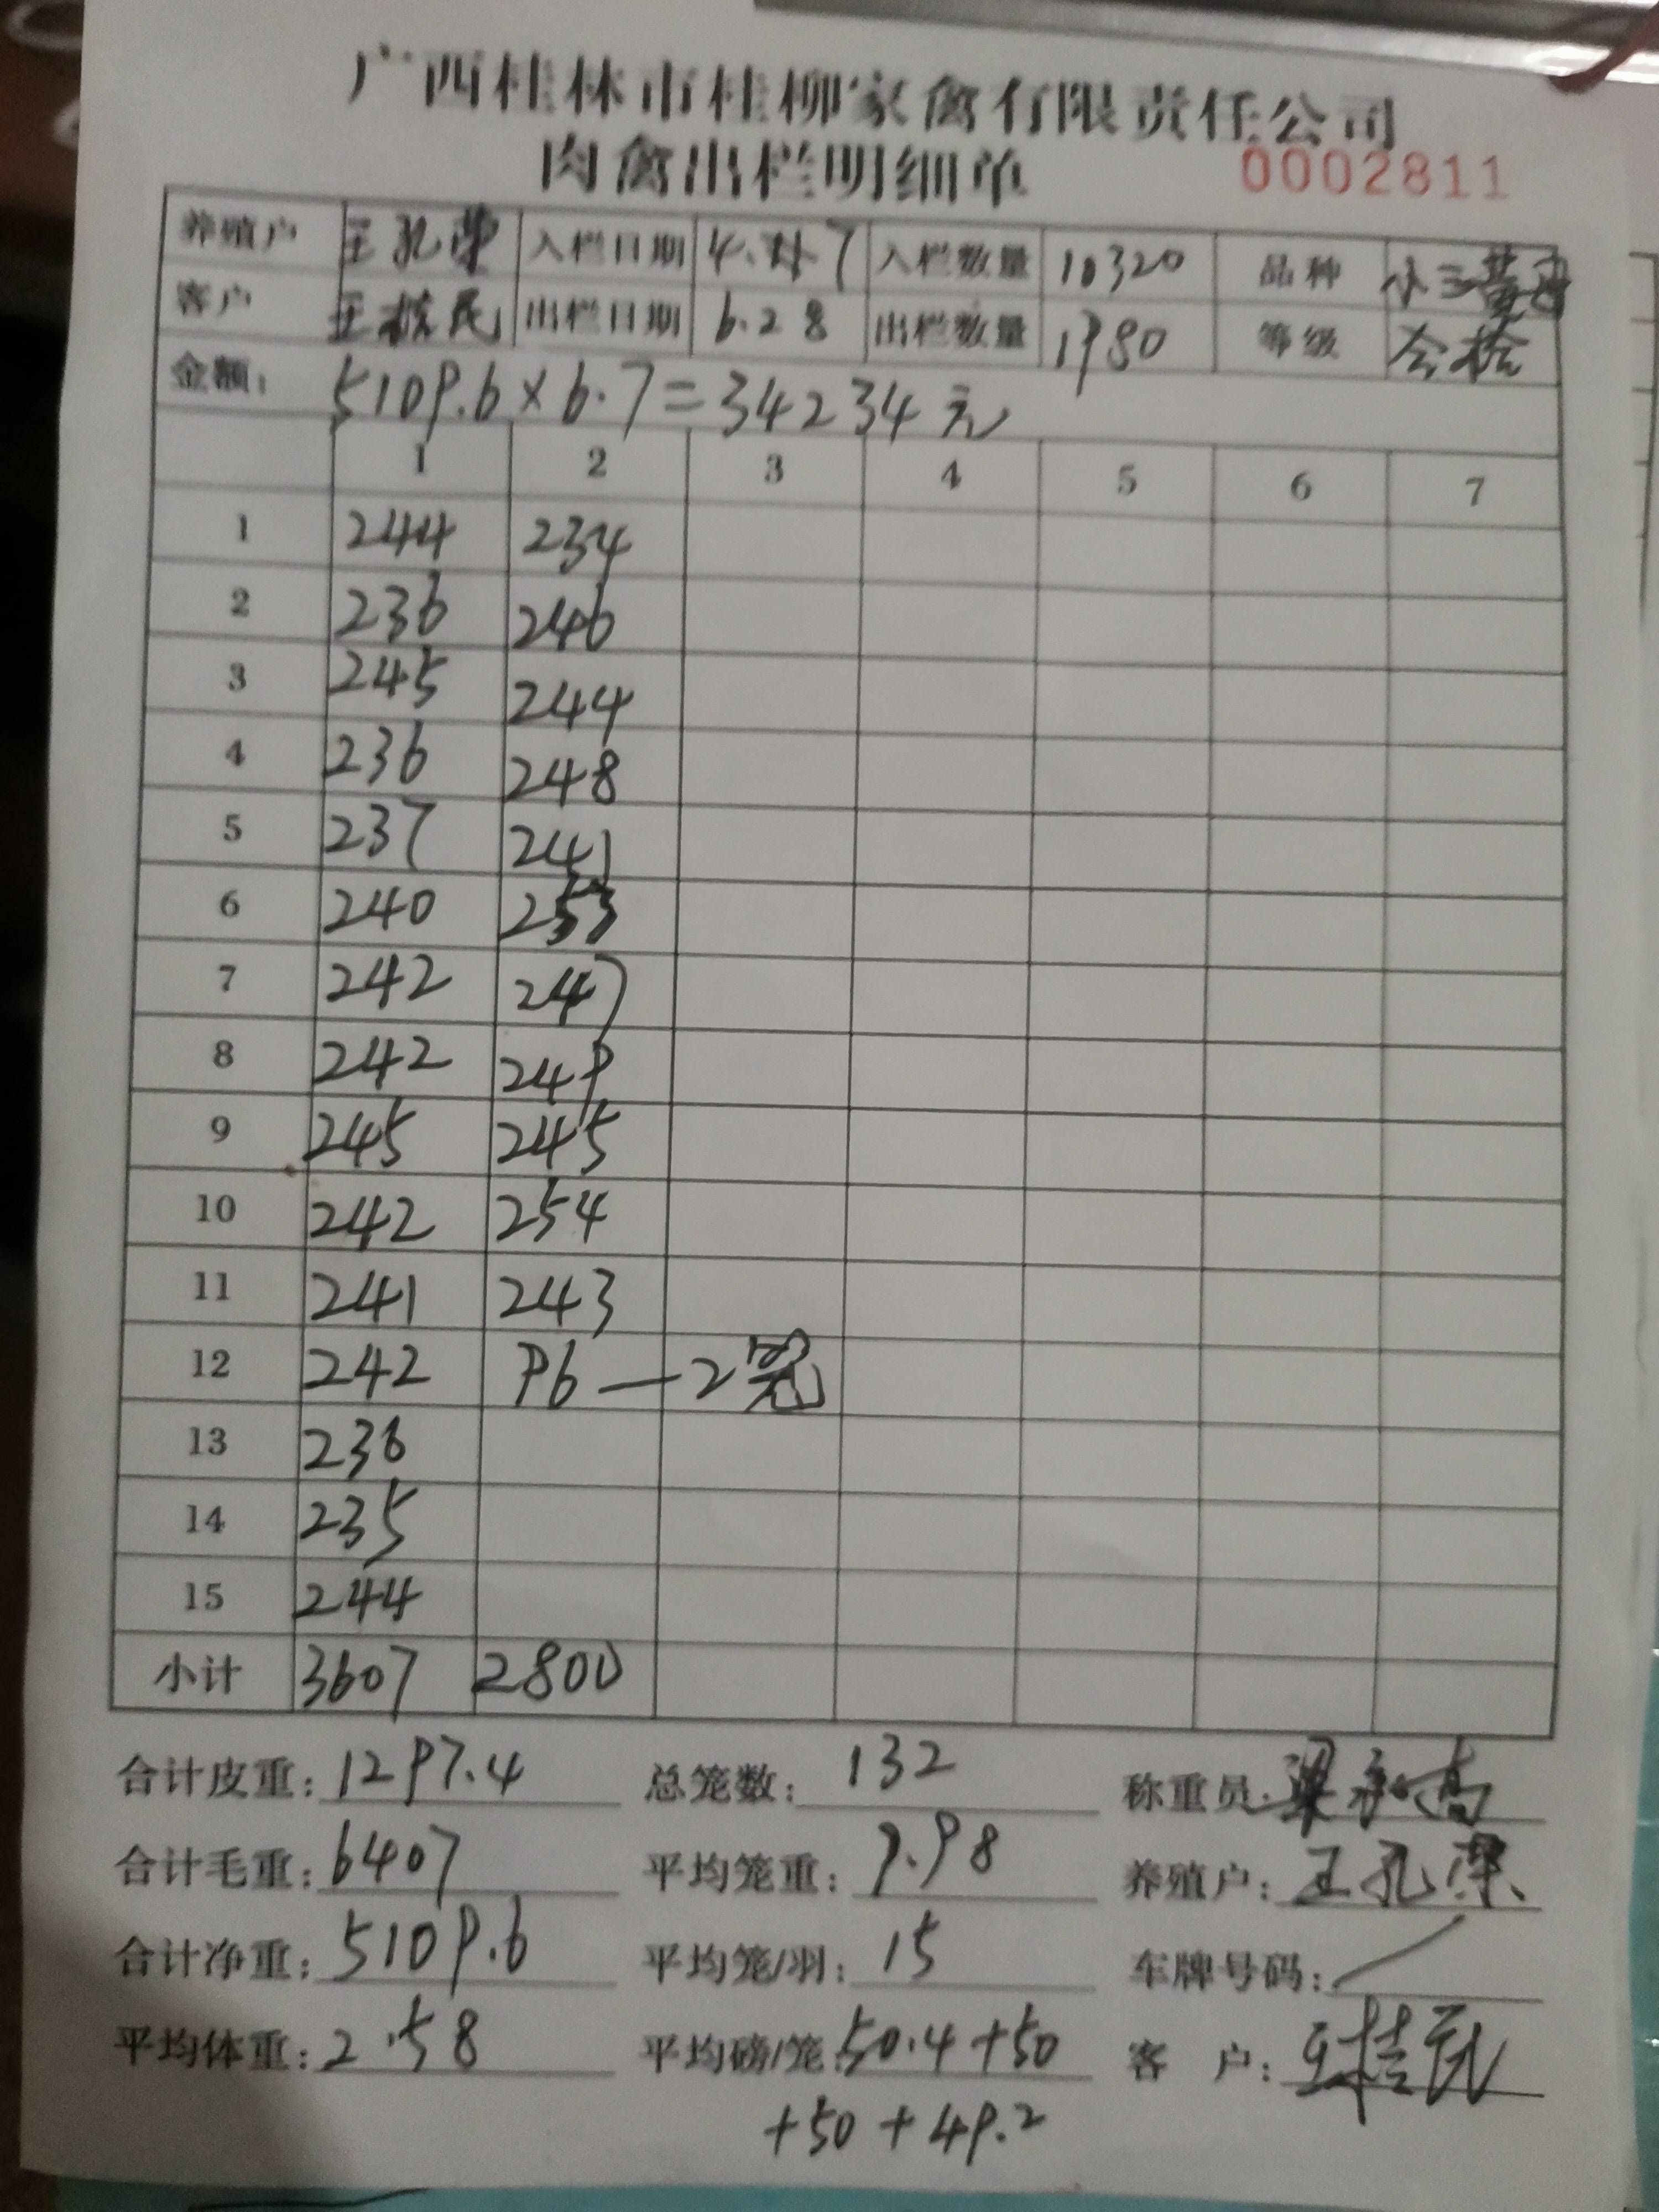 广西桂林市桂柳家禽有限责任公司
肉禽出栏明细单 0002811
养殖户 王孔荣 入栏日期 4. 7 入栏数量 10320 品种 小三黄
客户 王桂民 出栏日期 6.28 出栏数量 1980 等级 合格
金额: 5109.6×6.7=34234元
1 2 3 4 5 6 7
1 244 234
2 236 246
3 245 244
4 236 248
5 237 241
6 240 253
7 242 247
8 242 249
9 245 245
10 242 254
11 241 243
12 242 96—2笼
13 236
14 235
15 244
小计 3607 2800
合计皮重: 1297.4 总笼数: 132 称重员:
合计毛重: 6407 平均笼重: 9.98 养殖户: 王孔荣
合计净重: 5109.6 平均笼/羽: 15 车牌号码: /
平均体重: 2.58 平均磅/笼: 50.4+50 客 户: 王桂民
+50+49.2